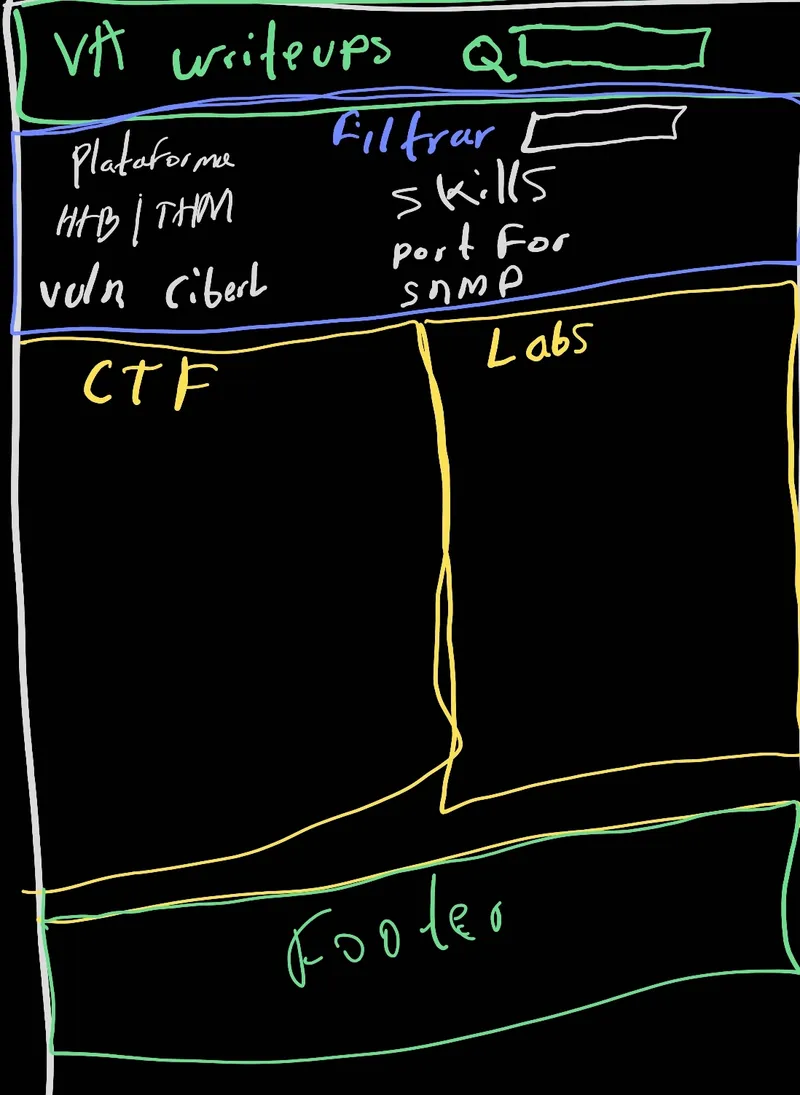 VA writeups Q
Filtrar
Plataforma
HTB | THM
vuln
skills
port For
snmp
CTF
Labs
Footer